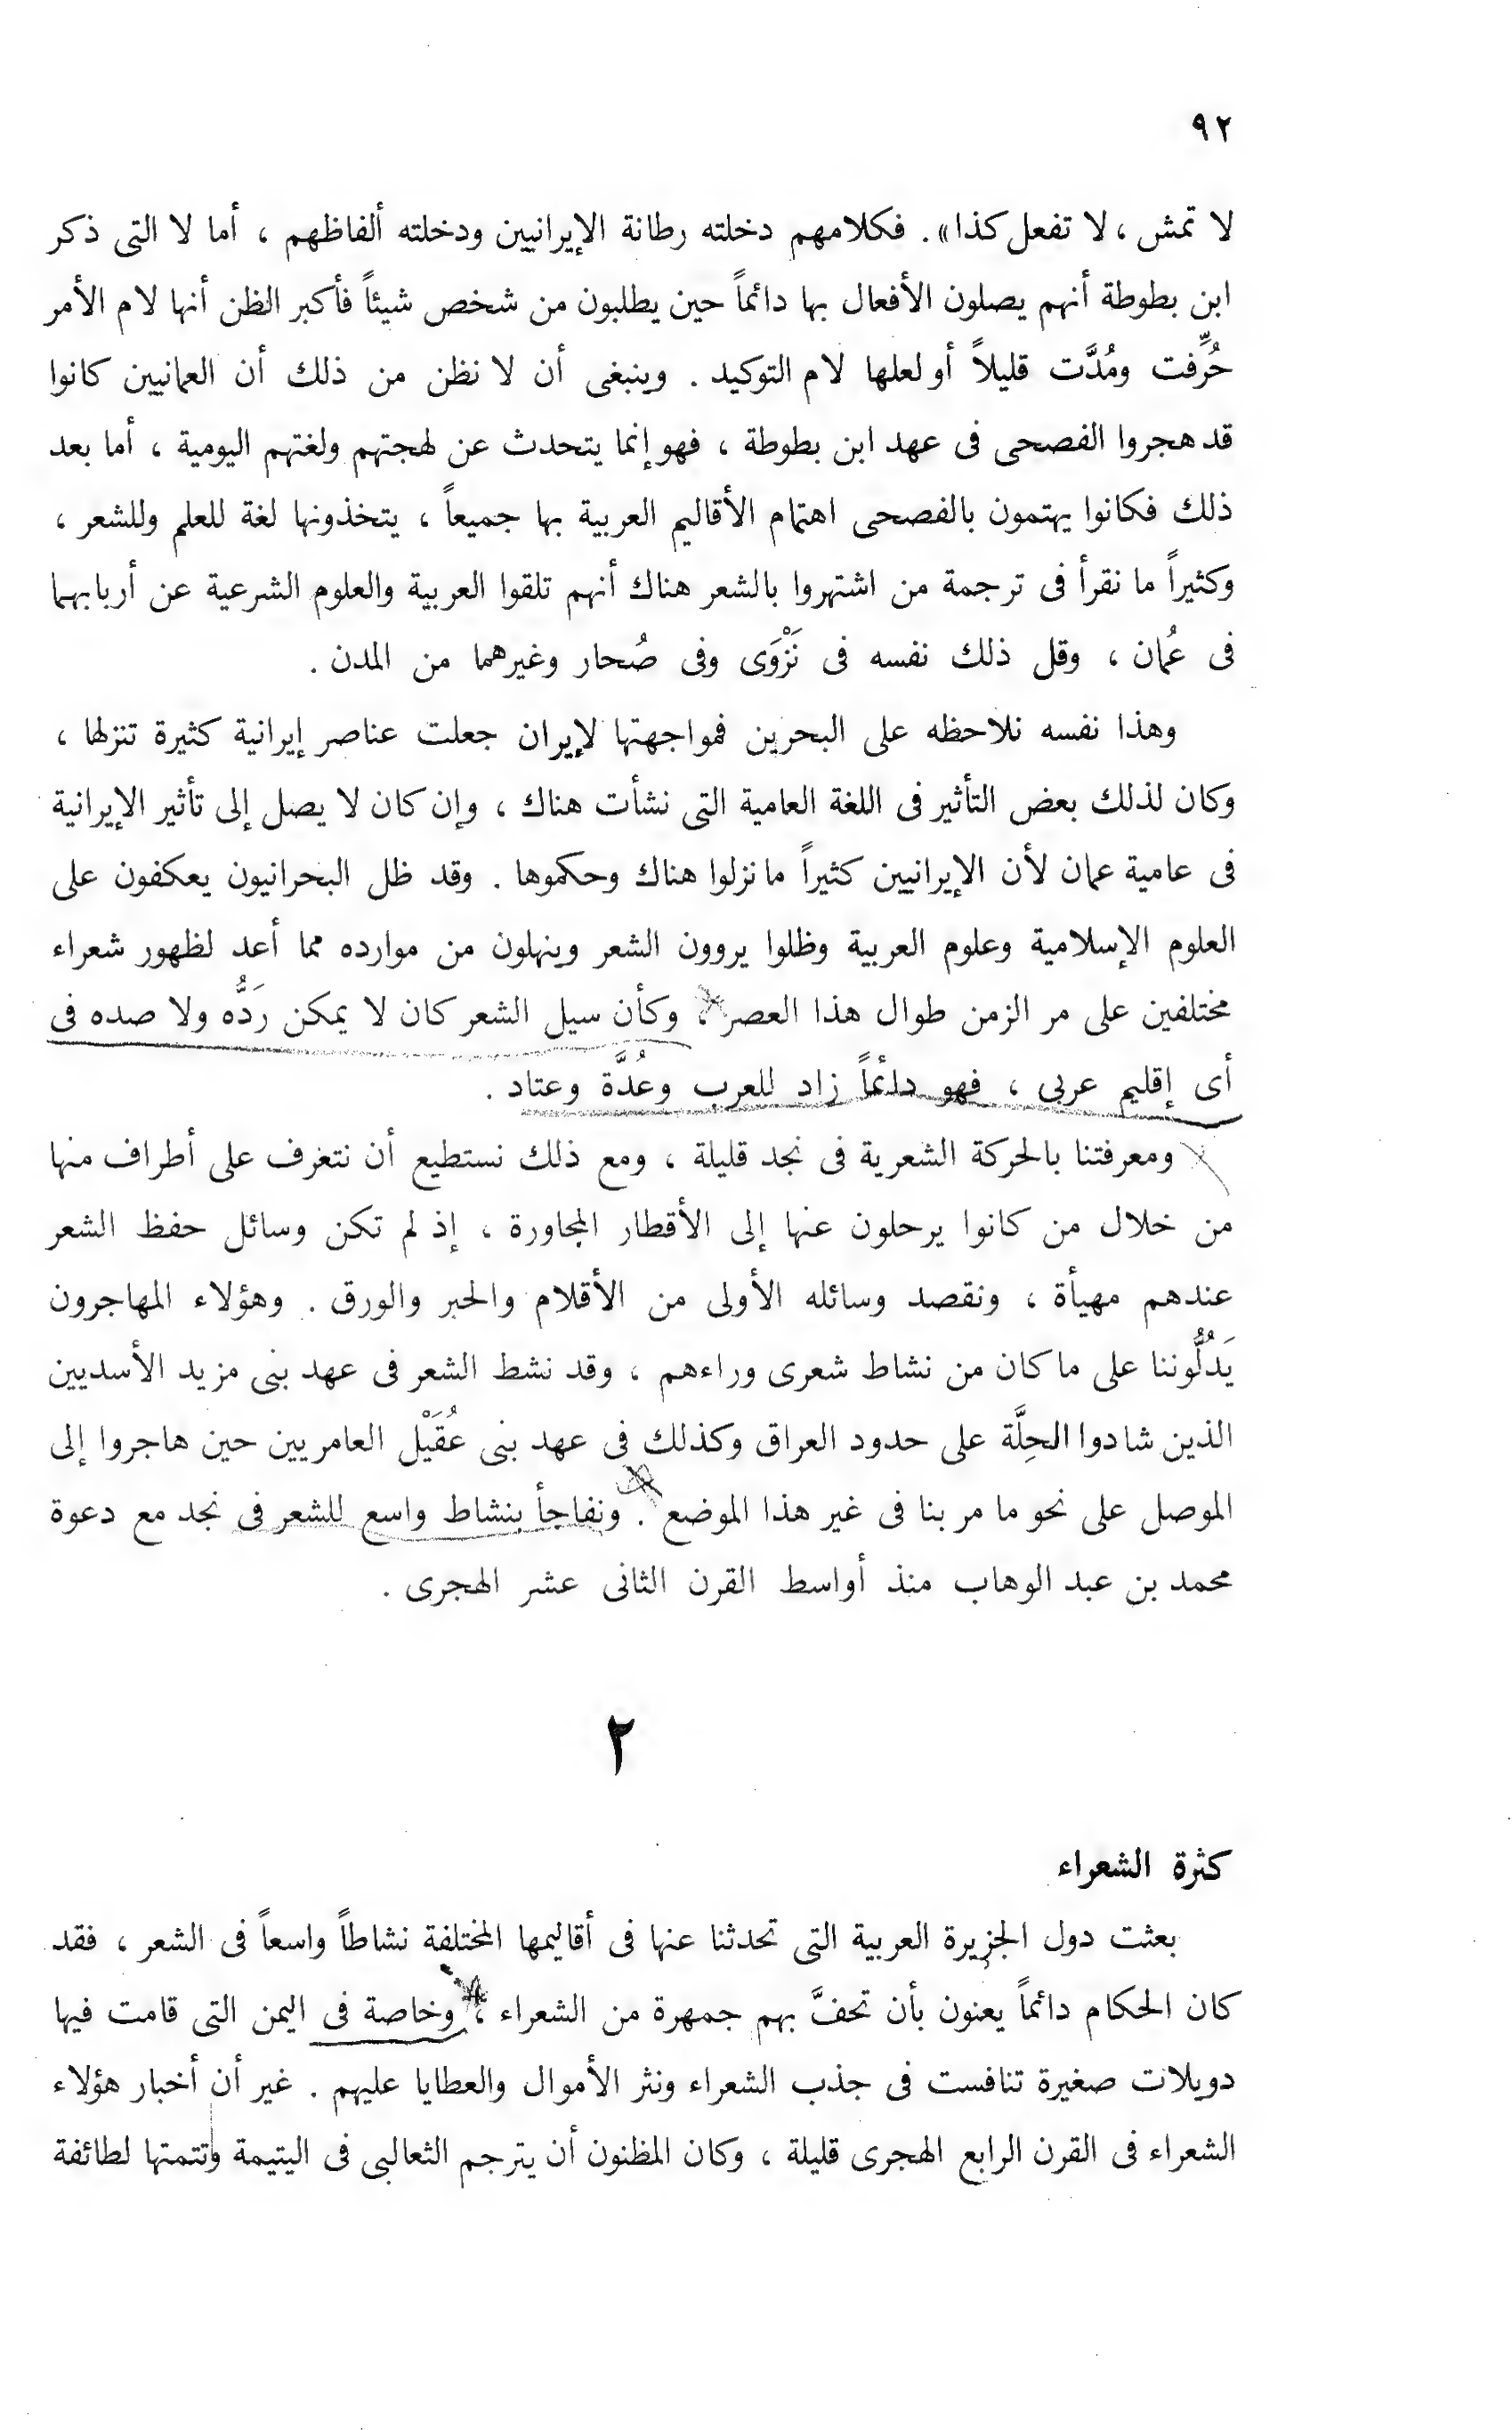 ٩٢
لا تمش ، لا تفعل كذا» . فكلامهم دخلته رطانة الإيرانيين ودخلته ألفاظهم ، أما لا التى ذكر
ابن بطوطة أنهم يصلون الأفعال بها دائماً حين يطلبون من شخص شيئاً فأكبر الظن أنها لام الأمر
حُرِّفت ومُدَّت قليلاً أو لعلها لام التوكيد . وينبغى أن لا نظن من ذلك أن العمانيين كانوا
قد هجروا الفصحى فى عهد ابن بطوطة ، فهو إنما يتحدث عن لهجتهم ولغتهم اليومية ، أما بعد
ذلك فكانوا يهتمون بالفصحى اهتمام الأقاليم العربية بها جميعاً ، يتخذونها لغة للعلم وللشعر ،
وكثيراً ما نقرأ فى ترجمة من اشتهروا بالشعر هناك أنهم تلقوا العربية والعلوم الشرعية عن أربابهما
فى عُمان ، وقل ذلك نفسه فى نَزْوَى وفى صُحار وغيرهما من المدن .
وهذا نفسه نلاحظه على البحرين فمواجهتها لإيران جعلت عناصر إيرانية كثيرة تنزلها ،
وكان لذلك بعض التأثير فى اللغة العامية التى نشأت هناك ، وإن كان لا يصل إلى تأثير الإيرانية
فى عامية عمان لأن الإيرانيين كثيراً ما نزلوا هناك وحكموها . وقد ظل البحرانيون يعكفون على
العلوم الإسلامية وعلوم العربية وظلوا يروون الشعر وينهلون من موارده مما أعد لظهور شعراء
مختلفين على مر الزمن طوال هذا العصر ، وكأن سيل الشعر كان لا يمكن رَدُّه ولا صده فى
أى إقليم عربى ، فهو دائماً زاد للعرب وعُدَّة وعتاد .
ومعرفتنا بالحركة الشعرية فى نجد قليلة ، ومع ذلك نستطيع أن نتعرف على أطراف منها
من خلال من كانوا يرحلون عنها إلى الأقطار المجاورة ، إذ لم تكن وسائل حفظ الشعر
عندهم مهيأة ، ونقصد وسائله الأولى من الأقلام والحبر والورق . وهؤلاء المهاجرون
يَدُلُّوننا على ما كان من نشاط شعرى وراءهم ، وقد نشط الشعر فى عهد بنى مزيد الأسديين
الذين شادوا الحِلَّة على حدود العراق وكذلك فى عهد بنى عُقَيْل العامريين حين هاجروا إلى
الموصل على نحو ما مر بنا فى غير هذا الموضع . ونفاجأ بنشاط واسع للشعر فى نجد مع دعوة
محمد بن عبد الوهاب منذ أواسط القرن الثانى عشر الهجرى .
٢
كثرة الشعراء
بعثت دول الجزيرة العربية التى تحدثنا عنها فى أقاليمها المختلفة نشاطاً واسعاً فى الشعر ، فقد
كان الحكام دائماً يعنون بأن تحفَّ بهم جمهرة من الشعراء ، وخاصة فى اليمن التى قامت فيها
دويلات صغيرة تنافست فى جذب الشعراء ونثر الأموال والعطايا عليهم . غير أن أخبار هؤلاء
الشعراء فى القرن الرابع الهجرى قليلة ، وكان المظنون أن يترجم الثعالبى فى اليتيمة وتتمتها لطائفة